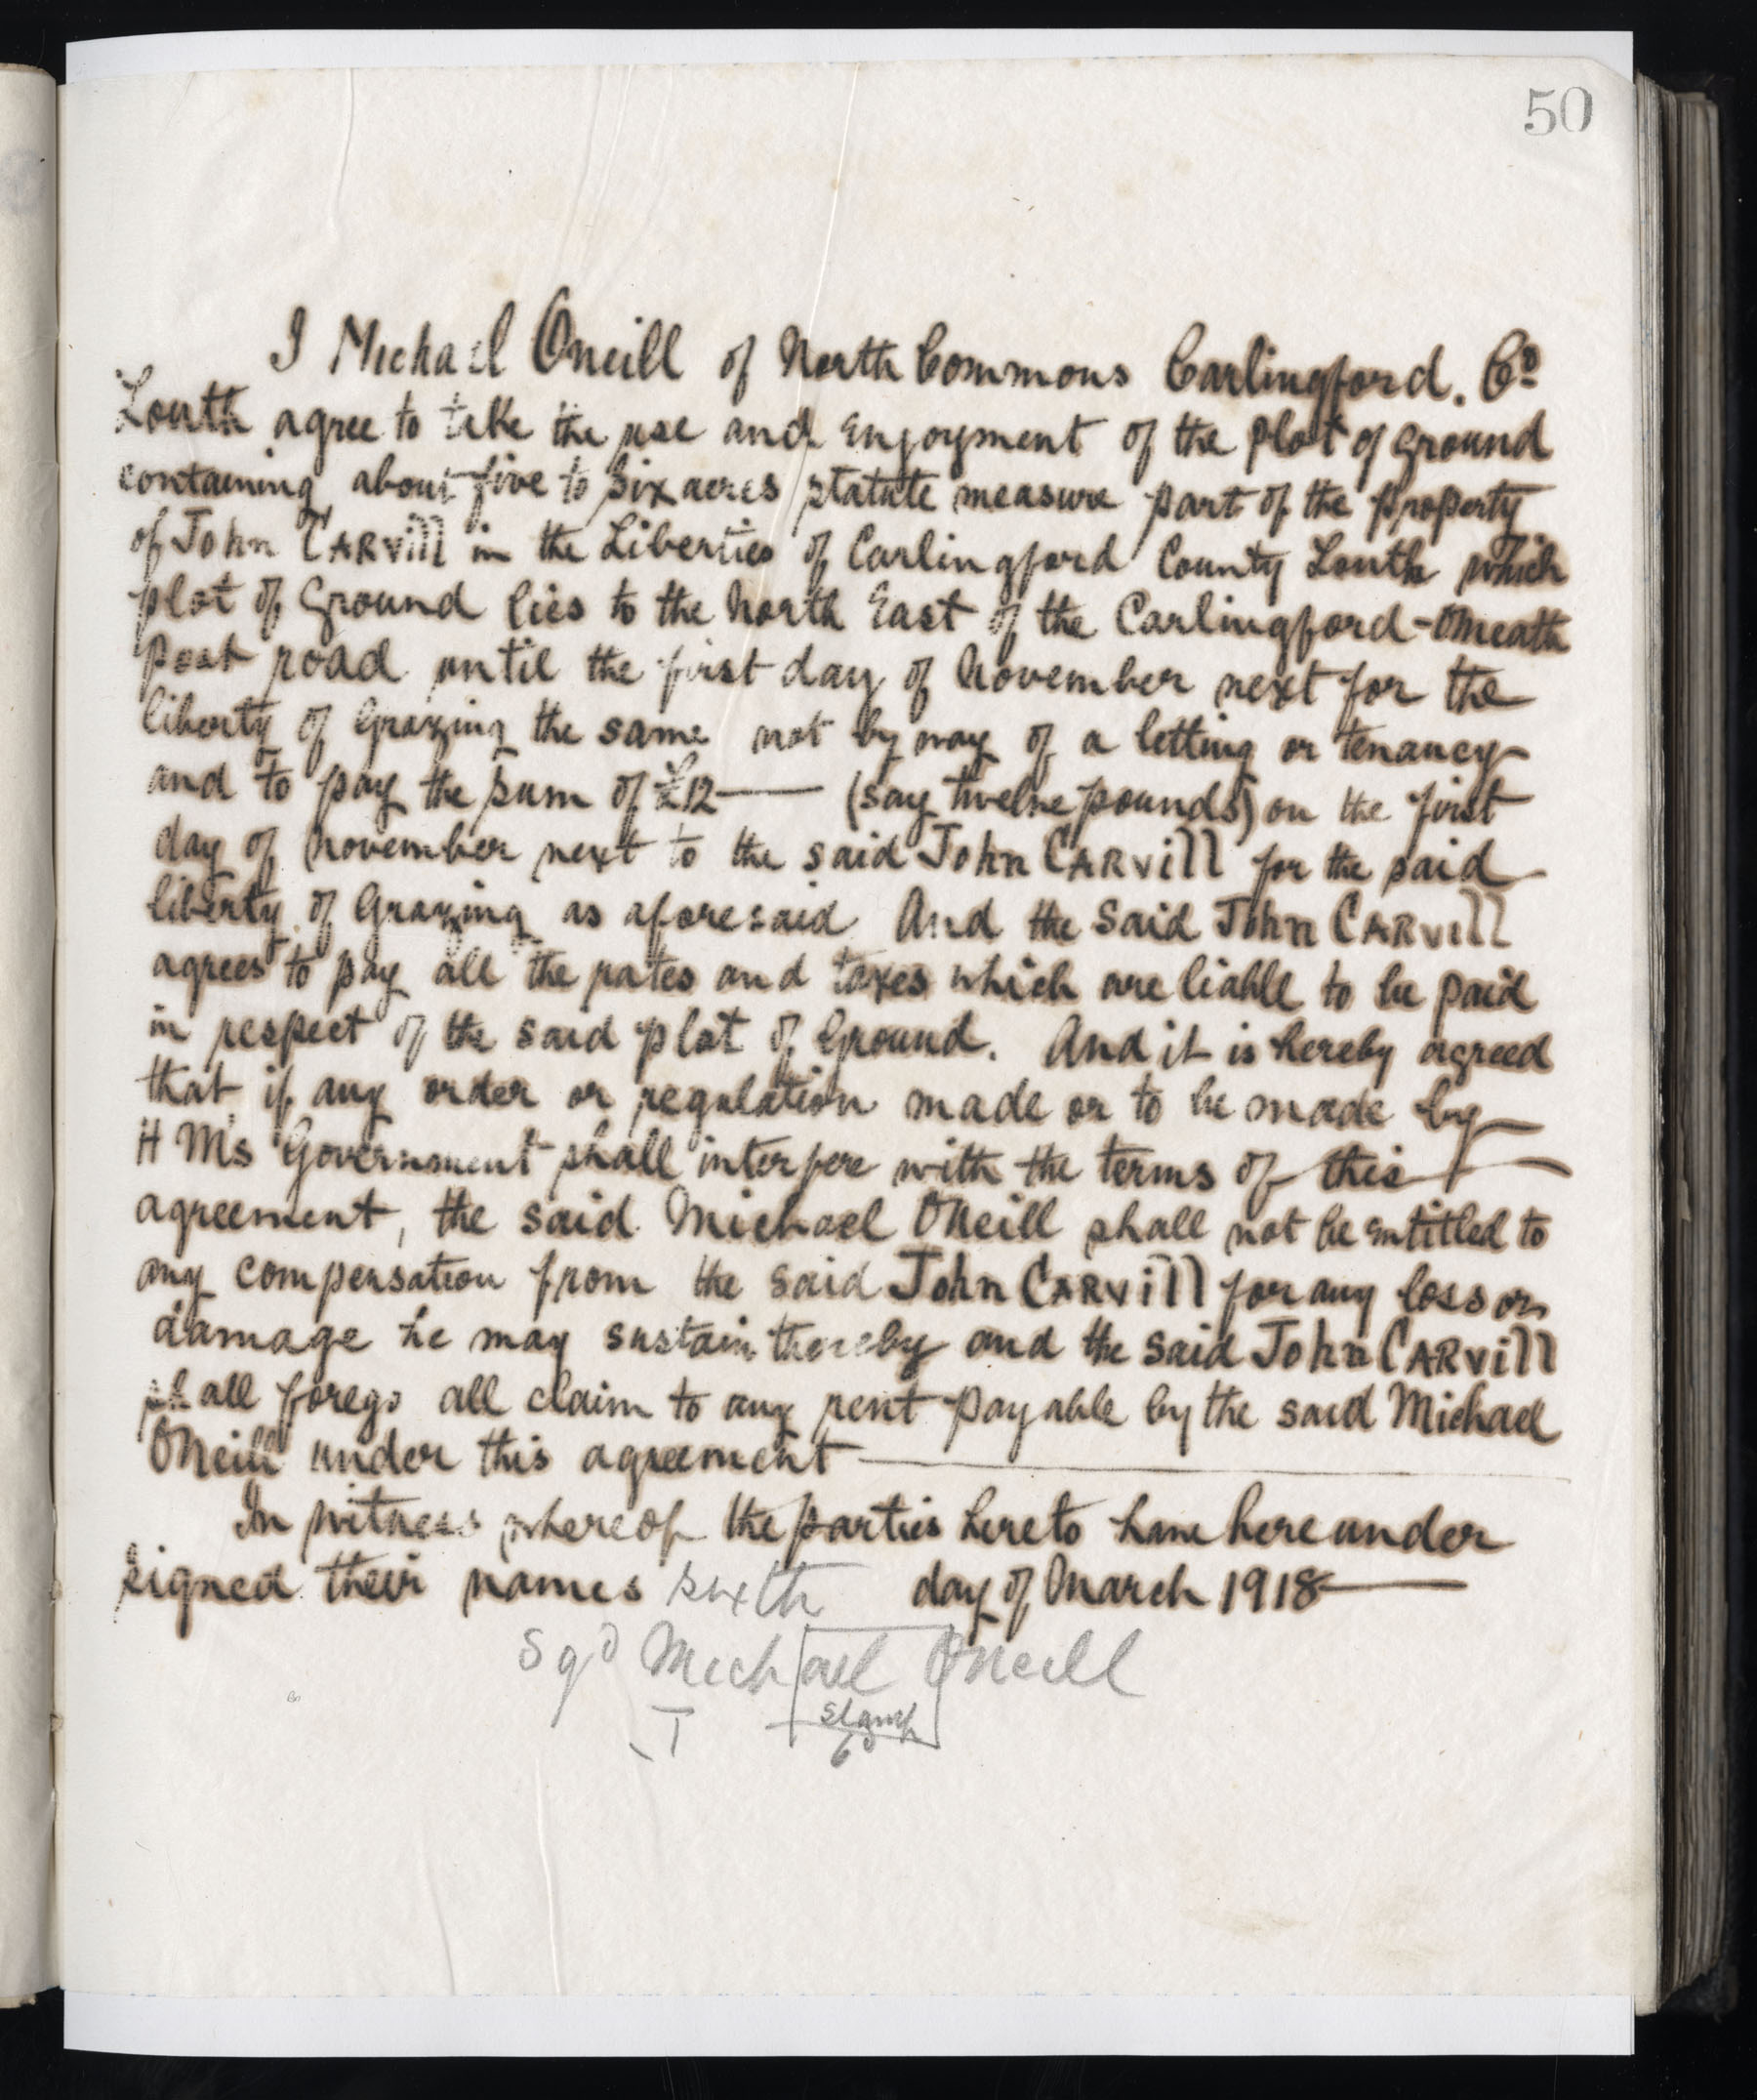 50
I Michael Oneill of North Commons Carlingford. Co
Louth agree to take the use and enjoyment of the plot of ground
containing about five to six acres statute measure part of the property
of John CARvill in the Liberties of Carlingford County Louth which
plot of Ground lies to the North East of the Carlingford-Omeath
Post road until the first day of November next for the
liberty of Grazing the same not by way of a letting or tenancy
and to pay the sum of £12— (say twelve pounds) on the first
day of November next to the said John CARvill for the said
liberty of Grazing as aforesaid And the said John CARvill
agrees to pay all the rates and taxes which are liable to be paid
in respect of the said plot of Ground. And it is hereby agreed
that if any order or regulation made or to be made by
H M's Government shall interfere with the terms of this
agreement, the said Michael ONeill shall not be entitled to
any compensation from the said John CARvill for any loss or
damage he may sustain thereby and the said John CARvill
shall forego all claim to any rent payable by the said Michael
ONeill under this agreement—
In witness whereof the parties hereto have hereunder
signed their names sixth day of March 1918—
Sgd Michael ONeill
Stamp
6d